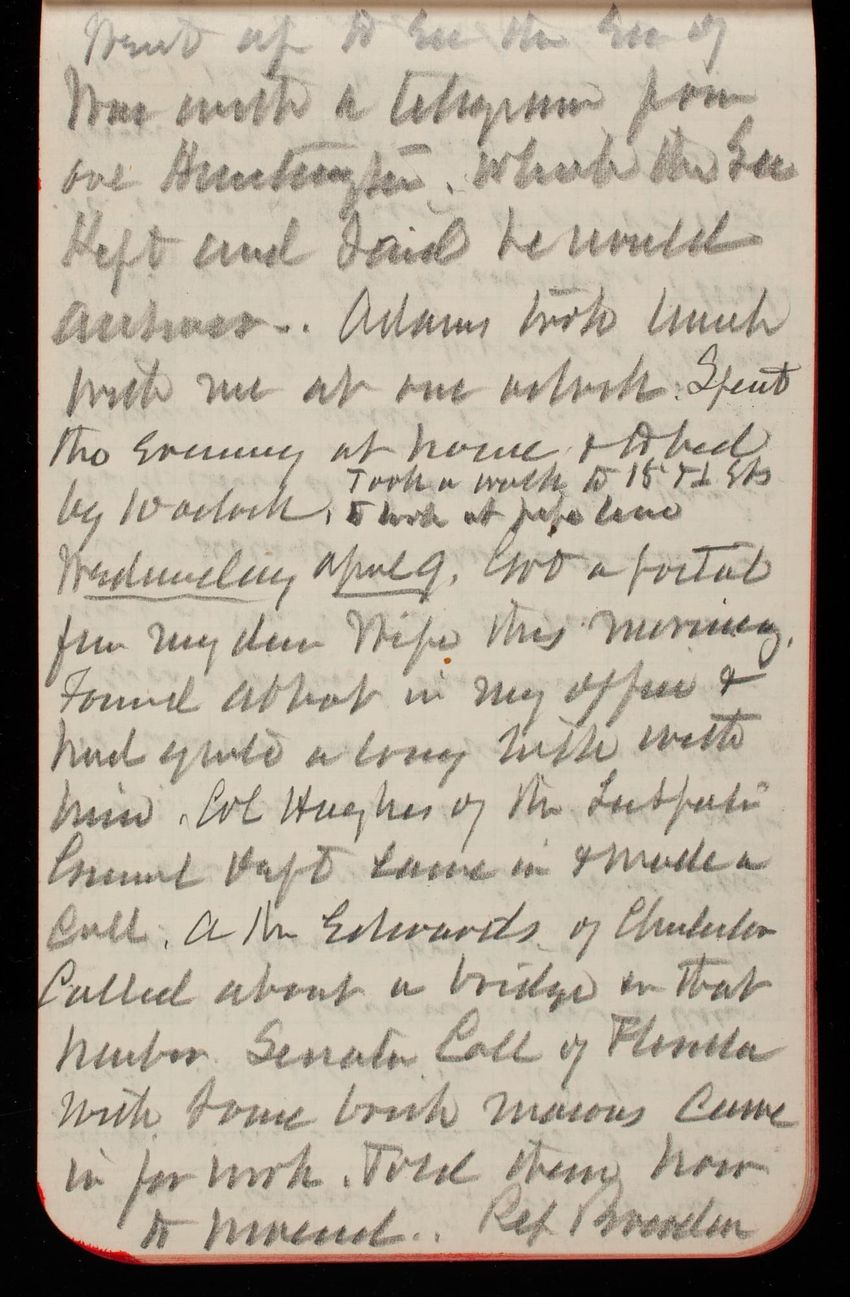 Went up to see the Sec of
War with a telegram from
ove Huntington. which the Sec
Kept and said he would
answer.. Adams took lunch
with me at one oclock. Spent
the evening at home & to bed
by 10 oclock. Took a walk to 15 & I Sts
to look at
Wednesday April 9. Got a postal
from my dear Wife this morning.
Found Abbot in my office &
had quite a long talk with
him. Col Hughes of the Inspector
General Dept came in & made a
call. A Mr Edwards of Charleston
Called about a bridge in that
harbor. Senator Call of Florida
with some brick masons came
in for work. Told them how
to proceed.. Rep